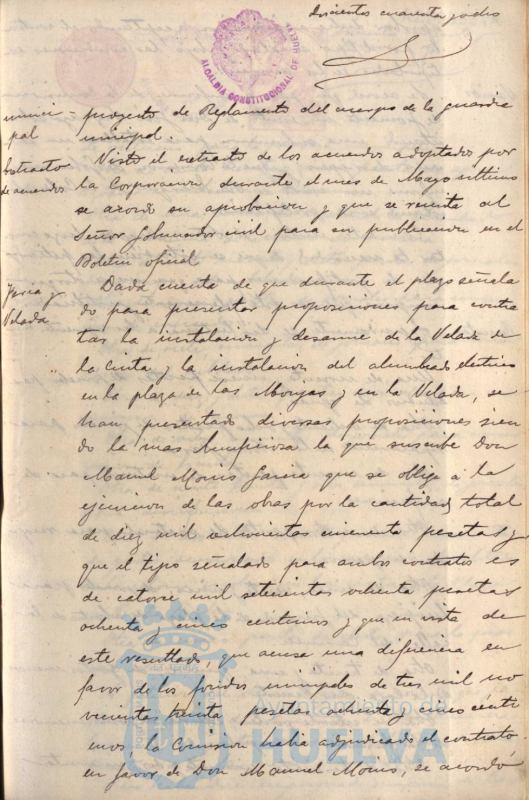 Doscientos cuarenta y ocho
ALCALDIA CONSTITUCIONAL DE HUELVA
munici-
pal
proyecto de Reglamento del cuerpo de la guardia
municipal.
Extracto
de acuerdos
Visto el extracto de los acuerdos adoptados por
la Corporacion durante el mes de Mayo ultimo
se acordó su aprobacion y que se remita al
Señor Gobernador civil para su publicacion en el
Boletin oficial
Feria y
Velada
Dada cuenta de que durante el plazo señala
do para presentar proposiciones para contra
tar la instalacion y desarme de la Velada de
la Cinta y la instalacion del alumbrado electrico
en la plaza de las Monjas y en la Velada, se
han presentado diversas proposiciones sien
do la mas beneficiosa la que suscribe Don
Manuel Garcia que se obliga á la
ejecucion de las obras por la cantidad total
de diez mil ochocientas cincuenta pesetas y
que el tipo señalado para ambos contratos es
de catorce mil setecientas ochenta pesetas
ochenta y cinco centimos y que en vista de
este resultado, que acusa una diferencia en
favor de los fondos municipales de tres mil no
vecientas treinta pesetas ochenta y cinco centi
mos, la Comision habia adjudicado el contrato
en favor de Don Manuel, se acordó
Ayuntamiento de
HUELVA